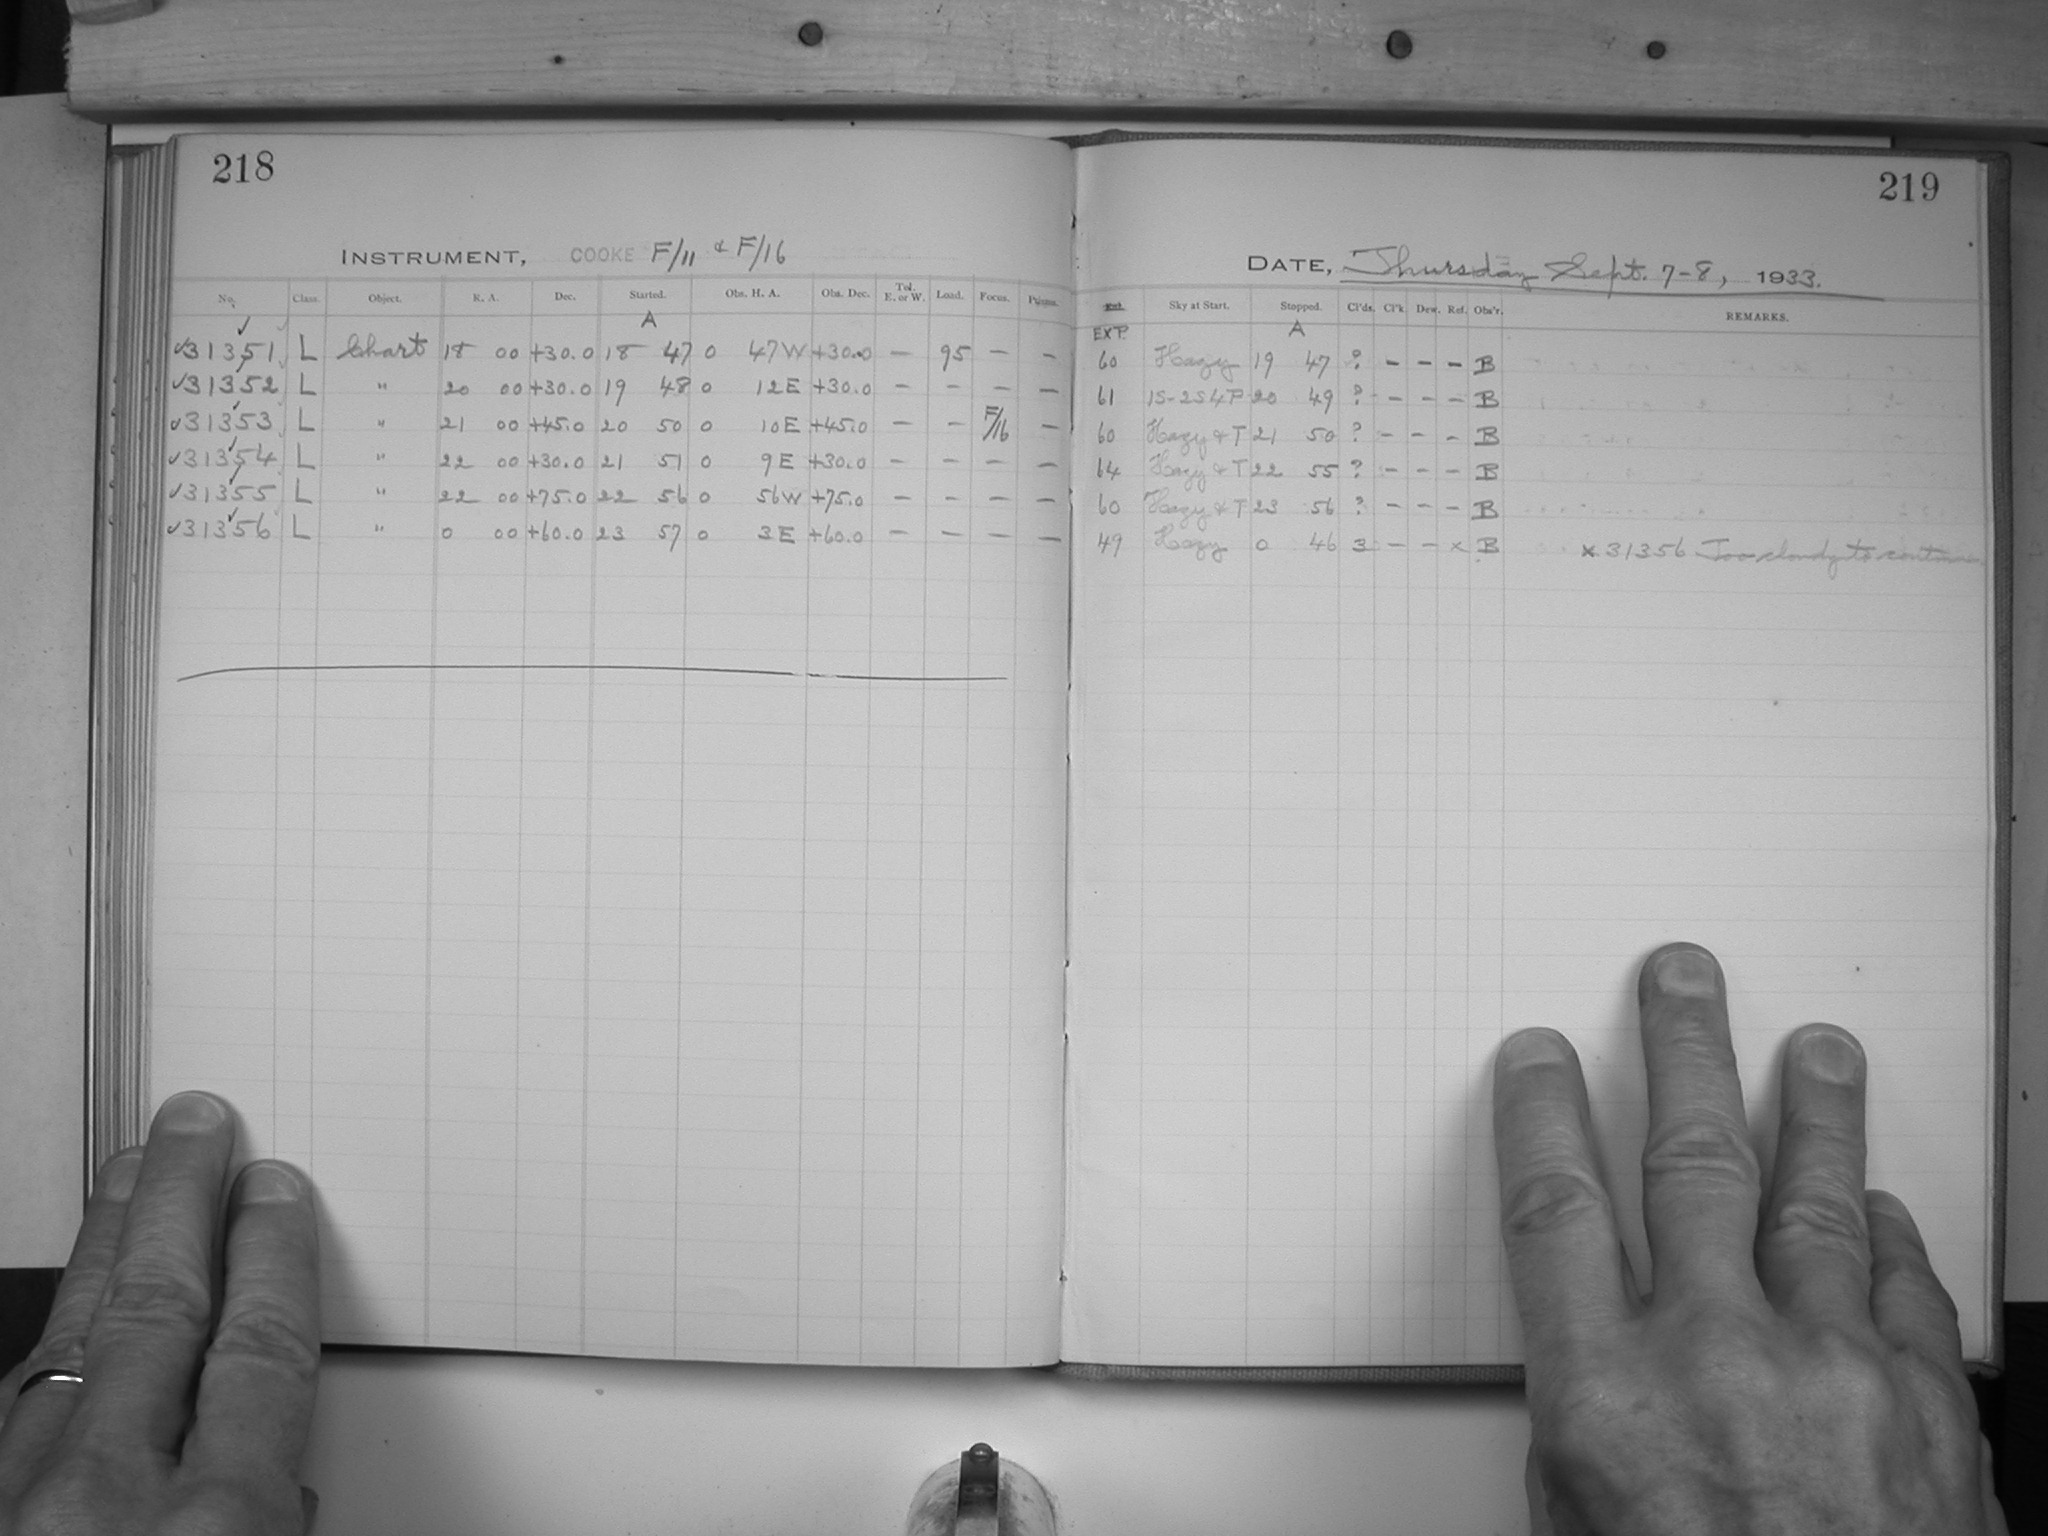 218
INSTRUMENT, COOKE F/11 & F/16
No. Class. Object. R. A. Dec. Started. Obs. H. A. Obs. Dec. Tel. E. or W. Load. Focus.
A
✓31351 L Chart 18 00 +30.0 18 47 0 47W +30.0 – 95 – –
✓31352 L " 20 00 +30.0 19 48 0 12E +30.0 – – – –
✓31353 L " 21 00 +45.0 20 50 0 10E +45.0 – – F/16 –
✓31354 L " 22 00 +30.0 21 51 0 9E +30.0 – – – –
✓31355 L " 22 00 +75.0 22 56 0 56W +75.0 – – – –
✓31356 L " 0 00 +60.0 23 57 0 3E +60.0 – – – –
219
DATE, Thursday Sept. 7-8, 1933.
Sky at Start. Stopped. Cl'ds. Cl'k Dew. Ref. Obs'r. REMARKS.
EXP. A
60 Hazy 19 47 ? – – – B
61 1S-2S4P 20 49 ? – – – B
60 Hazy & T 21 50 ? – – – B
64 Hazy & T 22 55 ? – – – B
60 Hazy & T 23 56 ? – – – B
49 Hazy 0 46 3 – – x B x 31356 Too cloudy to continue